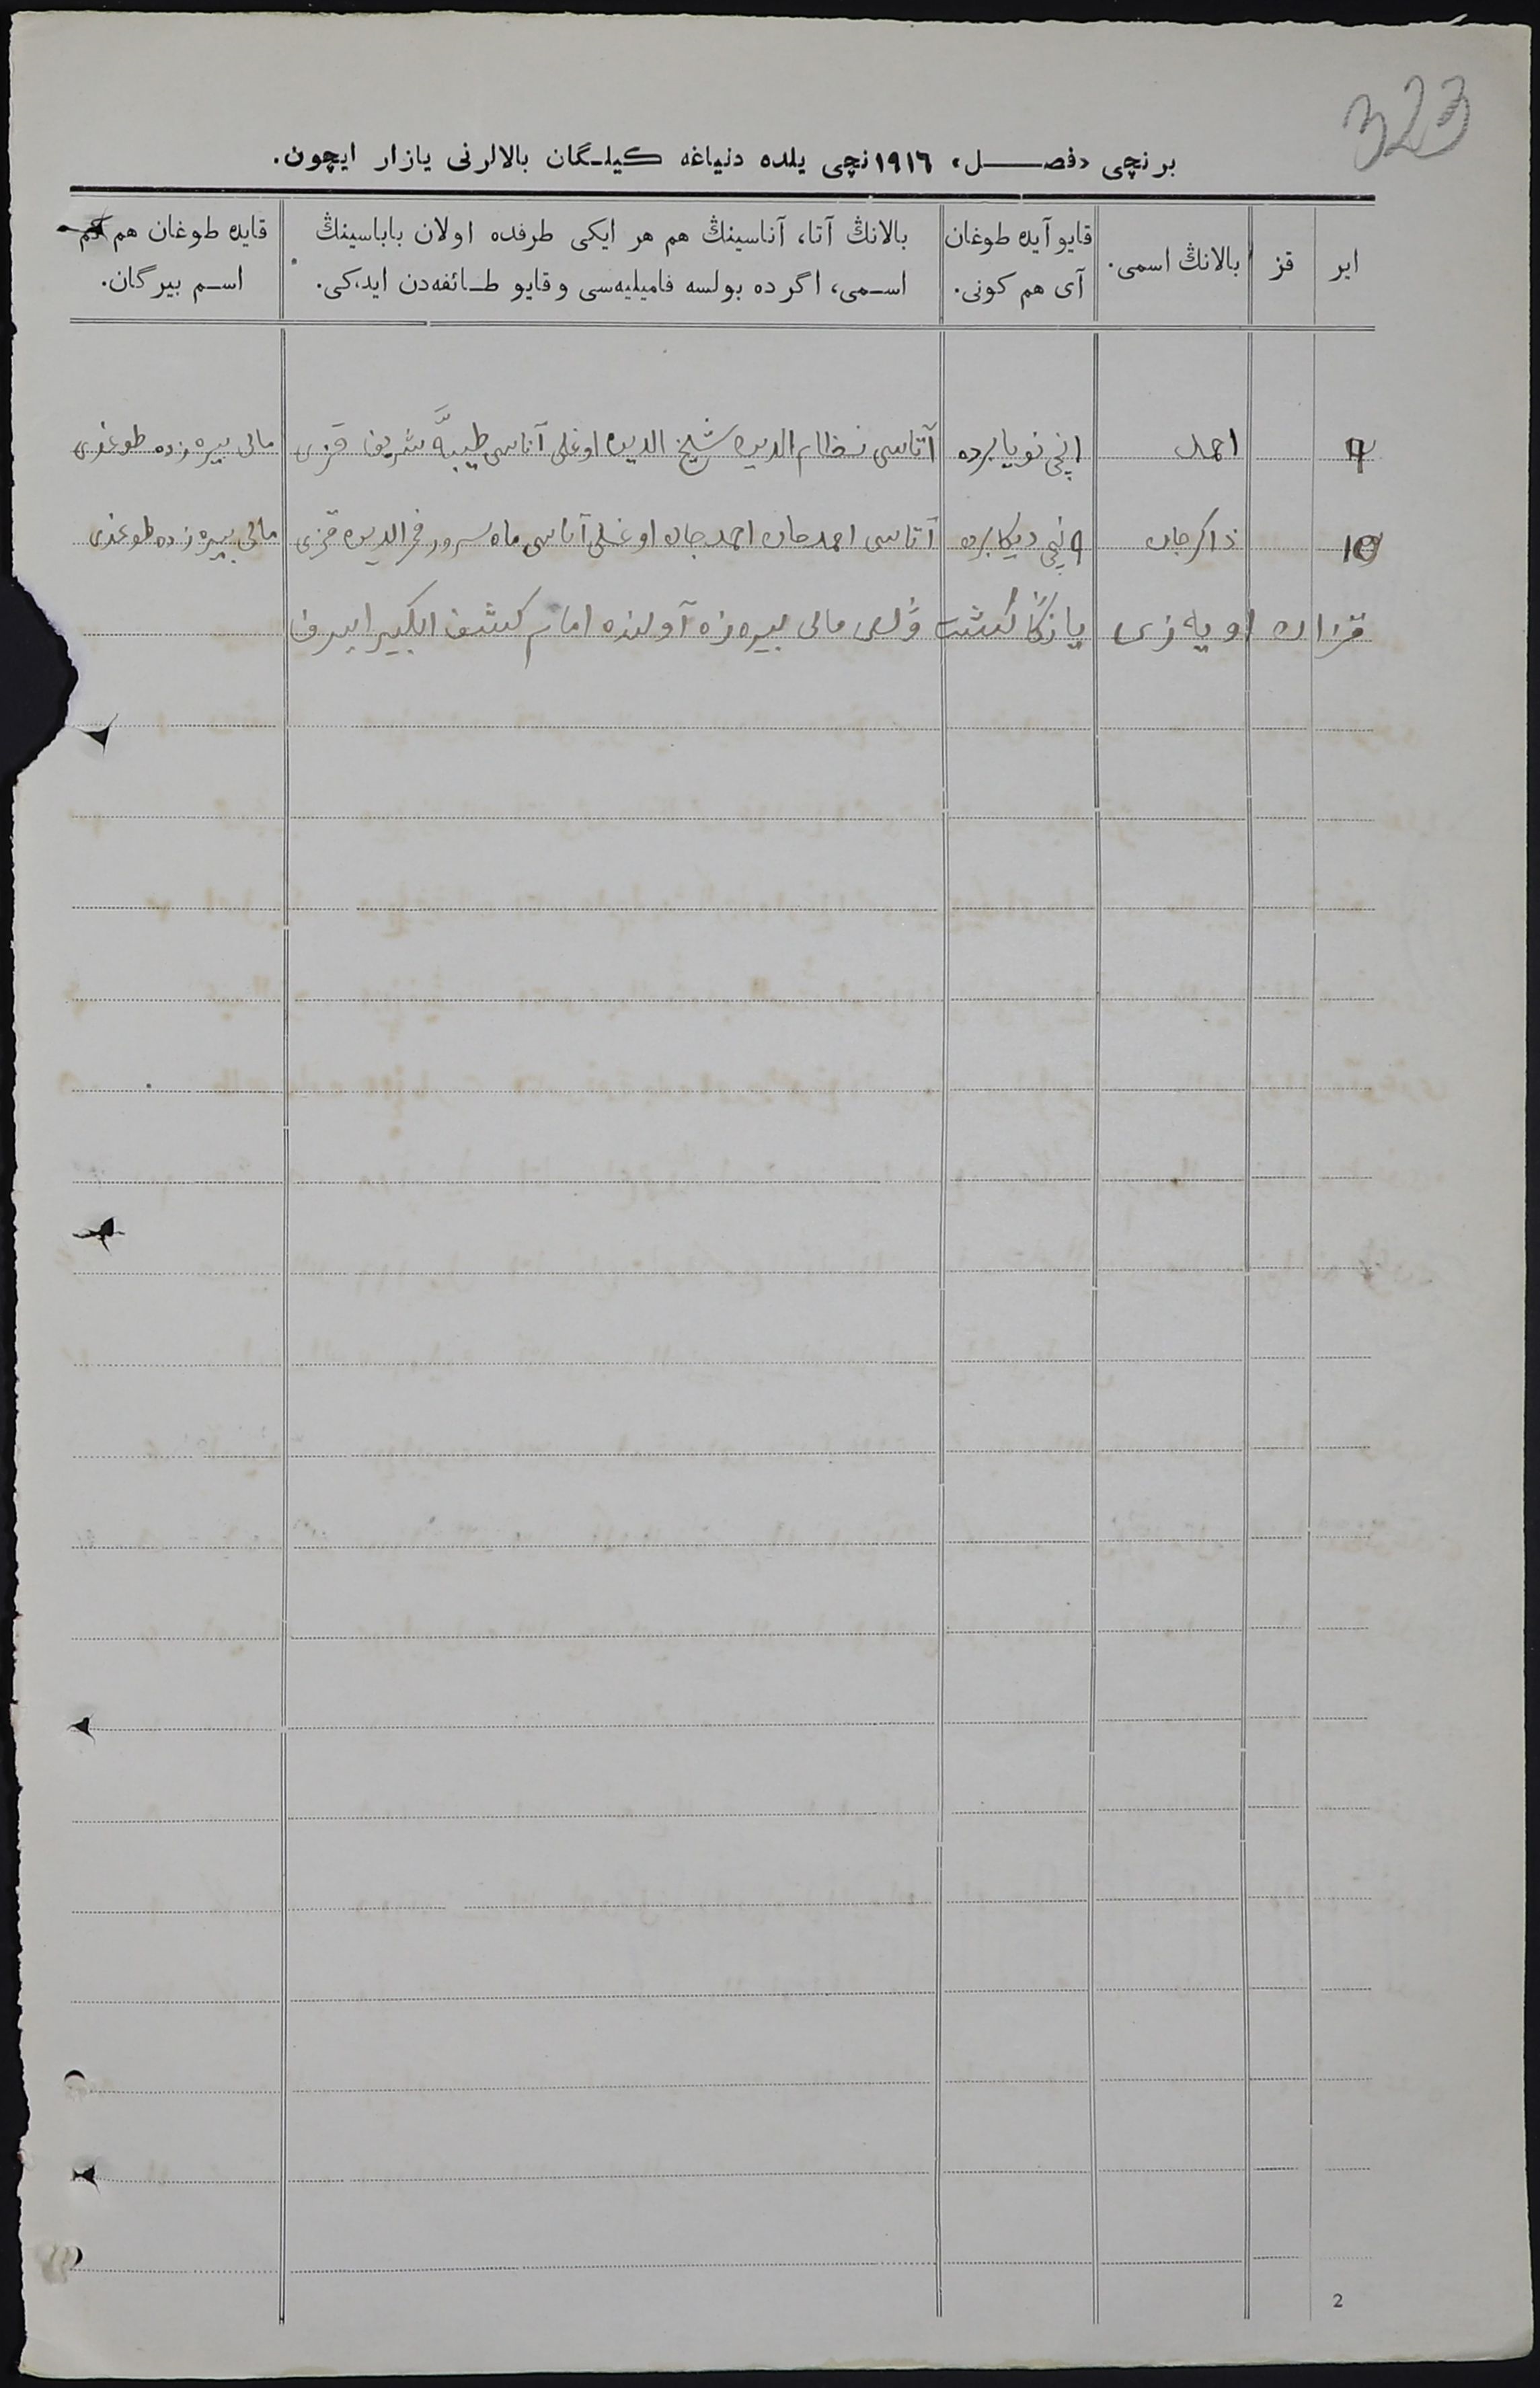 323
برنچی «فصل» ١٩١٦نچی یلده دنیاغه کیلگان بالالرنی یازار ایچون.
ایر
قز
بالانڭ اسمی.
قایو آیده طوغان
آی هم کونی.
بالانڭ آتا، آناسینڭ هم هر ایکی طرفده اولان باباسینڭ
اسمی، اگر ده بولسه فامیلیه‌سی و قایو طائفه‌دن ایدکی.
قایده طوغان هم کم
اسم بیرگان.
٩ احمد ١نچی نویابرده آتاسی نظام الدین شیخ الدین اوغلی آناسی طیبه شریف قزی مالی بیره‌زده طوغدی
10 ذاکرجان ٩نچی دیکابرده آتاسی احمدجان احمدجان اوغلی آناسی ماه سرور فخرالدین قزی مالی بیره‌زده طوغدی
قزان اویازی مالی بیره‌زه آولنده امام
2